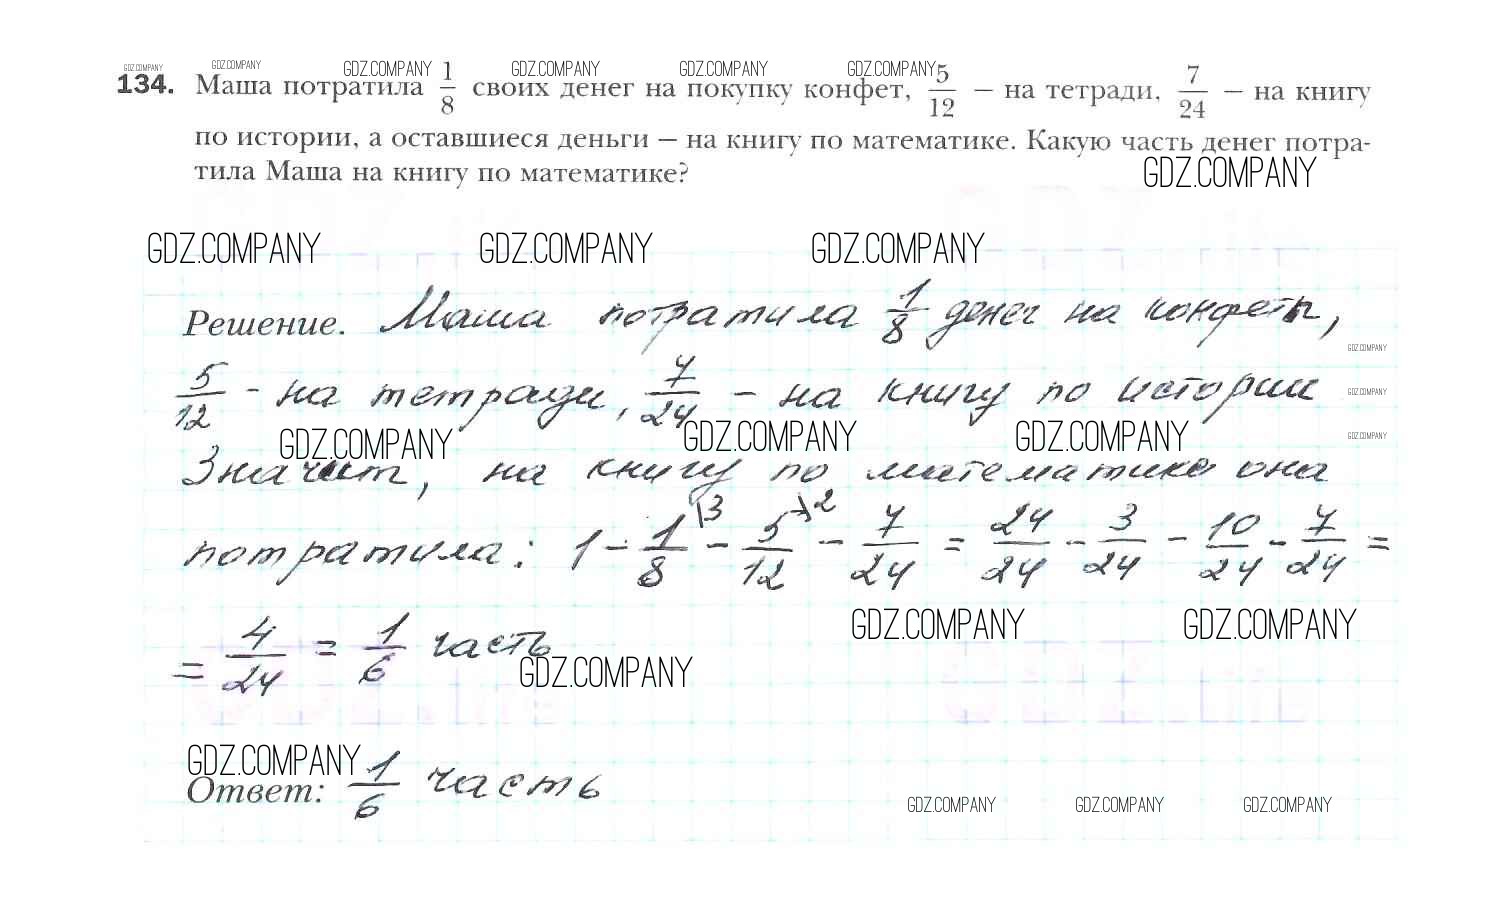 GDZ.COMPANY GDZ.COMPANY GDZ.COMPANY GDZ.COMPANY GDZ.COMPANY GDZ.COMPANY
134. Маша потратила 1/8 своих денег на покупку конфет, 5/12 – на тетради, 7/24 – на книгу
по истории, а оставшиеся деньги – на книгу по математике. Какую часть денег потра-
тила Маша на книгу по математике?
GDZ.COMPANY
GDZ.COMPANY GDZ.COMPANY GDZ.COMPANY
Решение. Маша потратила 1/8 денег на конфеты,
GDZ.COMPANY
5/12 - на тетради, 7/24 - на книгу по истории
GDZ.COMPANY
GDZ.COMPANY GDZ.COMPANY GDZ.COMPANY GDZ.COMPANY
Значит, на книгу по математике она
потратила: 1 - 1/8 \3 - 5/12 \2 - 7/24 = 24/24 - 3/24 - 10/24 - 7/24 =
GDZ.COMPANY GDZ.COMPANY
= 4/24 = 1/6 часть
GDZ.COMPANY
GDZ.COMPANY
Ответ: 1/6 часть
GDZ.COMPANY GDZ.COMPANY GDZ.COMPANY